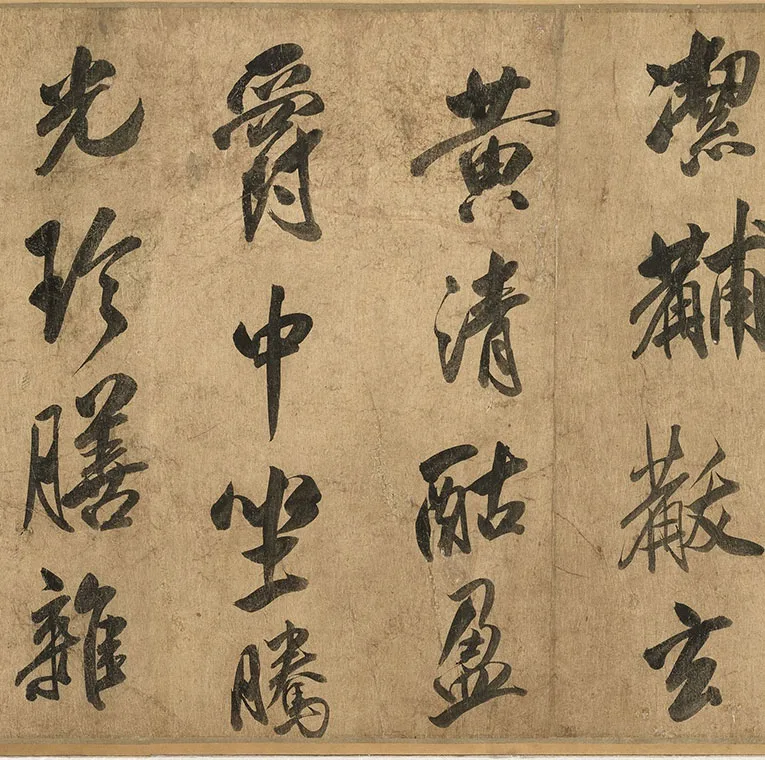 潔黼黻玄
黃清酤盈
爵中坐騰
光珍膳雜